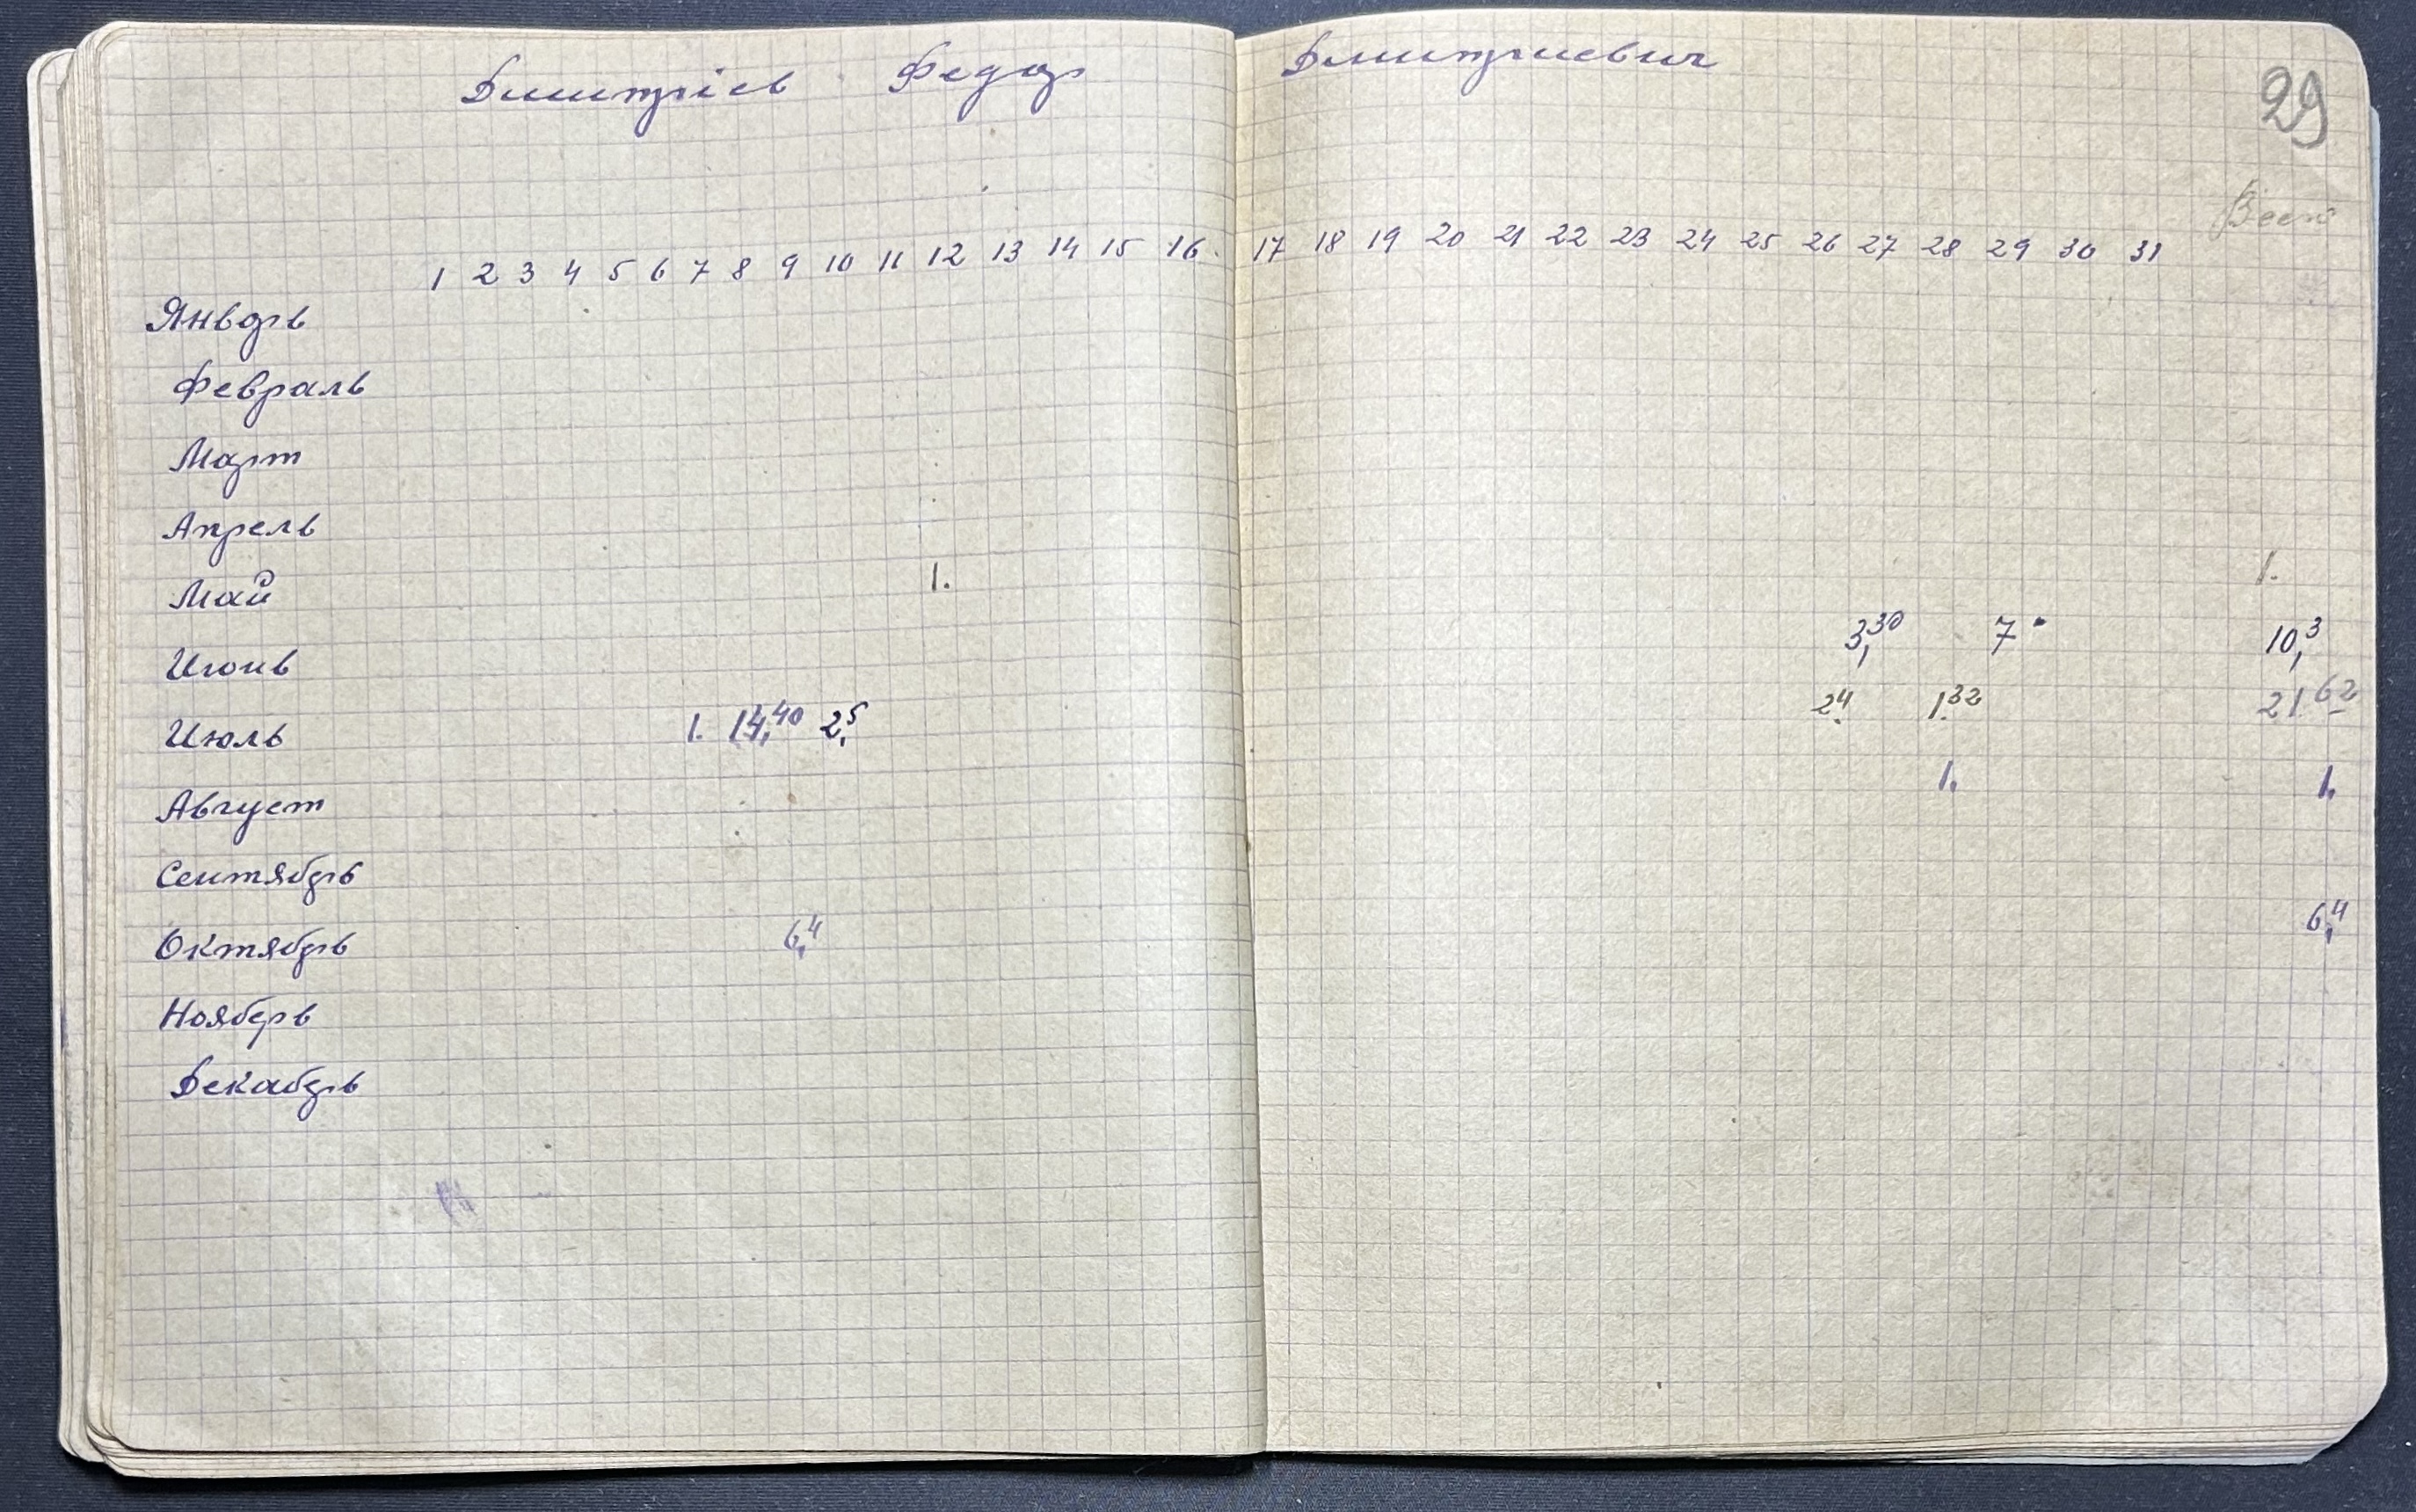 Дмитріев Федор Дмитриевич
29
Всего
1 2 3 4 5 6 7 8 9 10 11 12 13 14 15 16. 17 18 19 20 21 22 23 24 25 26 27 28 29 30 31
Январь
Февраль
Март
Апрель
Май 1. 1.
Июнь 3,30 7 10,3
Июль 1. 14,40 2,5 2.4 1.32 21.62
Август 1. 1.
Сентябрь
Октябрь 6,4 6,4
Ноябрь
Декабрь